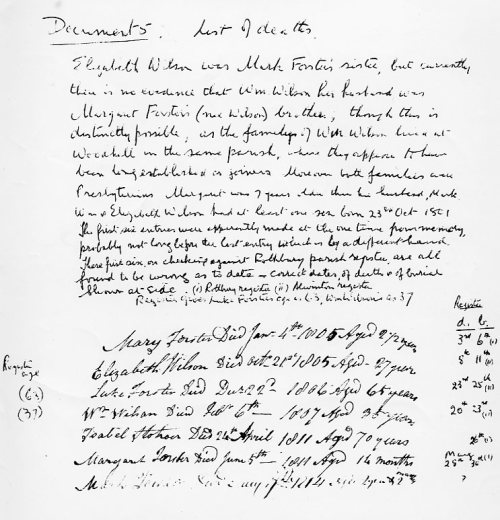 Document 5. List of deaths.
Elizabeth Wilson was Mark Forster's sister, but currently
there is no evidence that Wm Wilson her husband was
Margaret Forster's (née Wilson) brother, though this is
distinctly possible, as the family of Wm Wilson lived at
Woodhall in the same parish, where they appear to have
been long established as joiners. Moreover both families were
Presbyterians. Margaret was 7 years older than her husband, Mark.
Wm & Elizabeth Wilson had at least one son born 23rd Oct 1801
The first six entries were apparently made at the one time from memory,
probably not long before the last entry which is by a different hand.
These first six, on checking against Rothbury parish register, are all
found to be wrong as to date – correct dates of death & of burial
shown at side. (i) Rothbury register (ii) Alwinton register
Register gives Luke Forster's age as 63, Wm Wilson's as 37
Register
d. b.
Mary Forster Died Jany 4th 1805 Aged 27 years 3rd 6th (i)
Elizabeth Wilson Died Octr 21st 1805 Aged 27 years 8th 11th (ii)
Register
age
(63) Luke Forster Died Decr 22nd 1806 Aged 65 years 23rd 25th (ii)
(37) Wm Wilson Died Febr 6th 1807 Aged 38 years 20th 23rd
Isabel Died 24 April 1811 Aged 70 years 26th (i)
Margaret Forster Died June 5th 1811 Aged 14 months May 28th 30th (i)
Mark 17th 1814 Aged ?